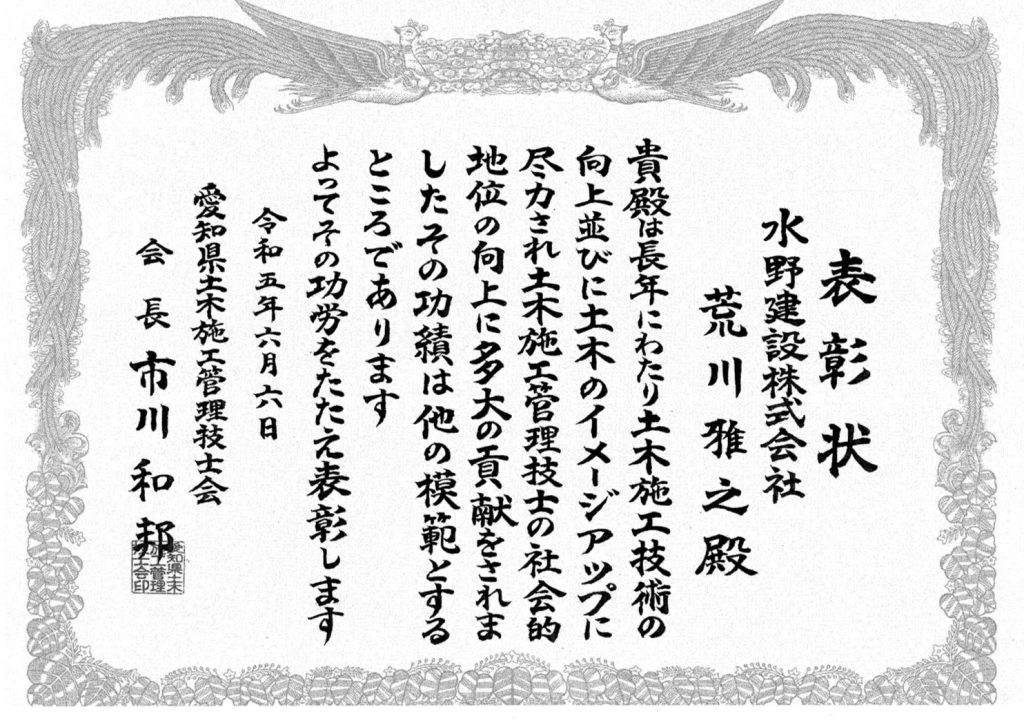 表彰状
水野建設株式会社
荒川雅之殿
貴殿は長年にわたり土木施工技術の
向上並びに土木のイメージアップに
尽力され土木施工管理技士の社会的
地位の向上に多大の貢献をされま
したその功績は他の模範とする
ところであります
よってその功労をたたえ表彰します
令和五年六月六日
愛知県土木施工管理技士会
会長 市川和邦
愛知県土木
施工管理
技士会印